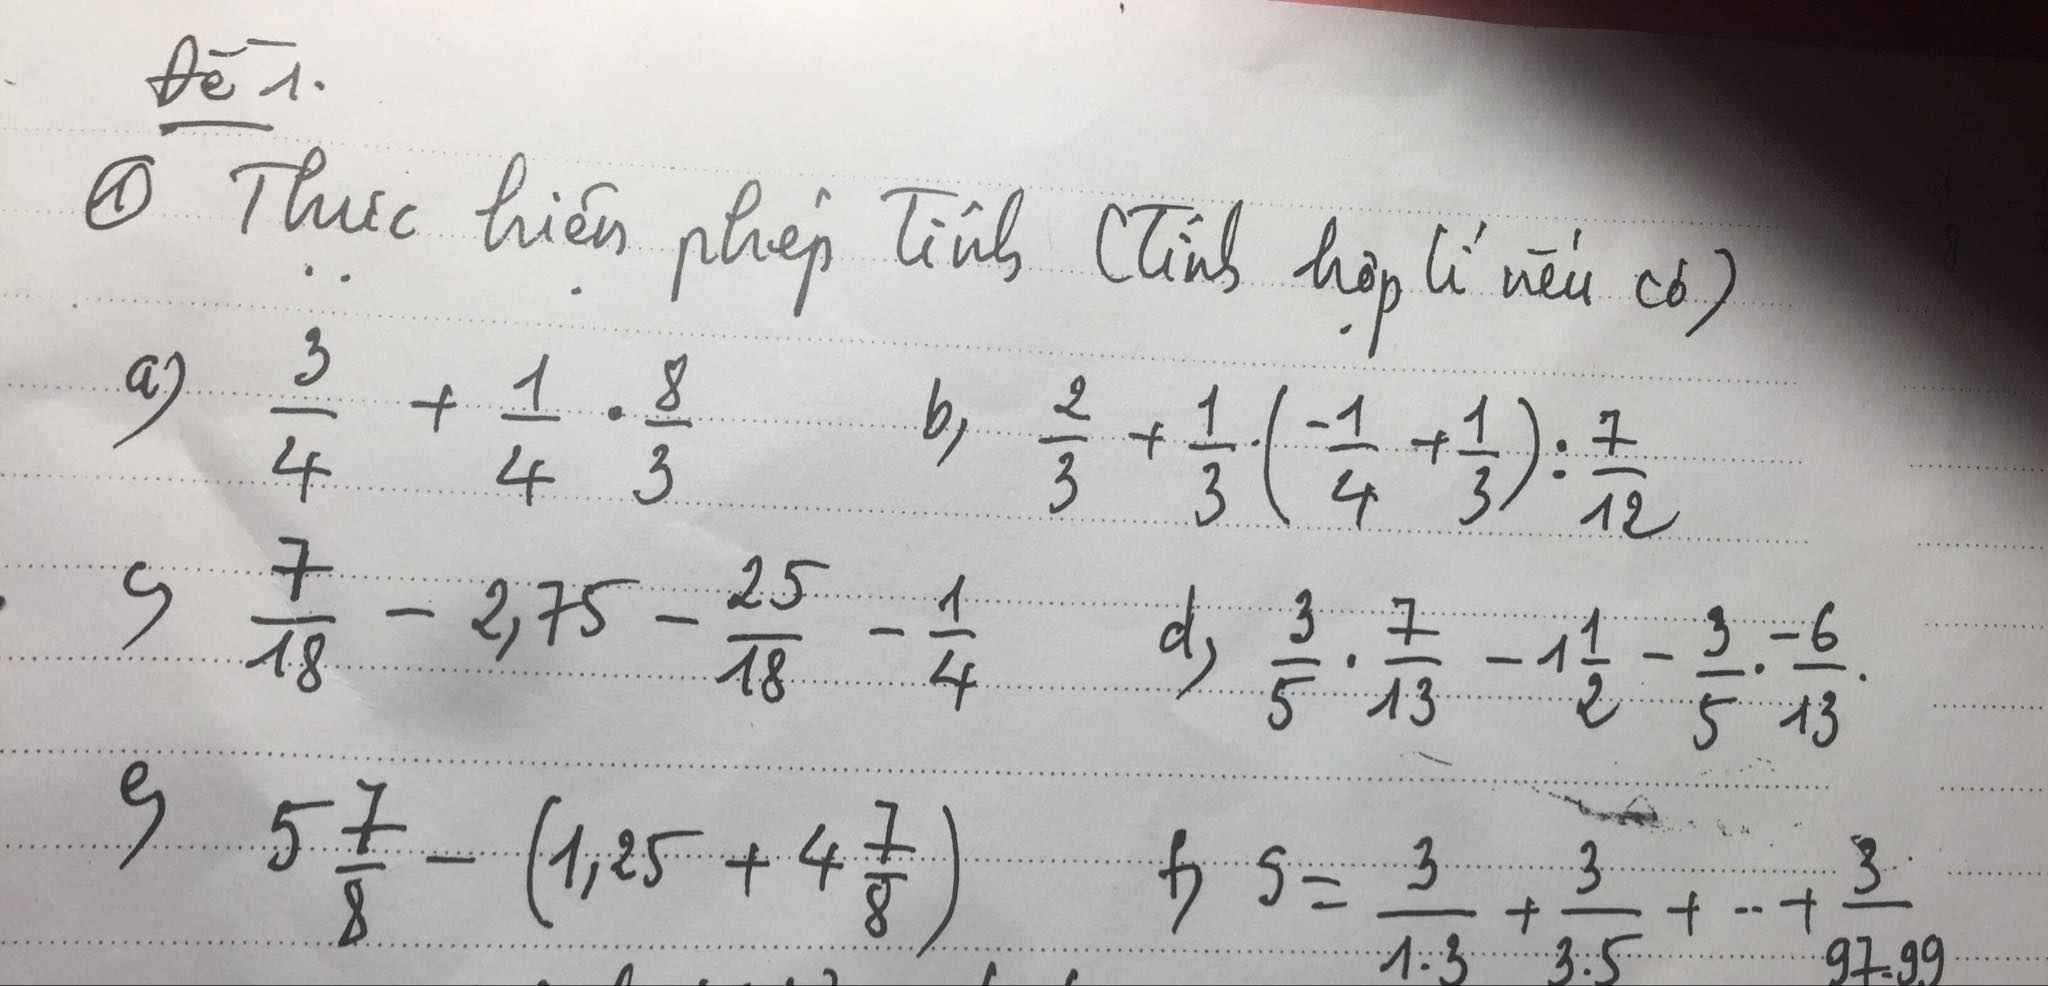 Đề 1.
① Thực hiện phép tính (Tính hợp lí nếu có)
a) 3/4 + 1/4 . 8/3 b, 2/3 + 1/3 . (-1/4 + 1/3) : 7/12
c, 7/18 - 2,75 - 25/18 - 1/4 d, 3/5 . 7/13 - 1 1/2 - 3/5 . -6/13.
e, 5 7/8 - (1,25 + 4 7/8) f, S = 3/1.3 + 3/3.5 + .. + 3/97.99